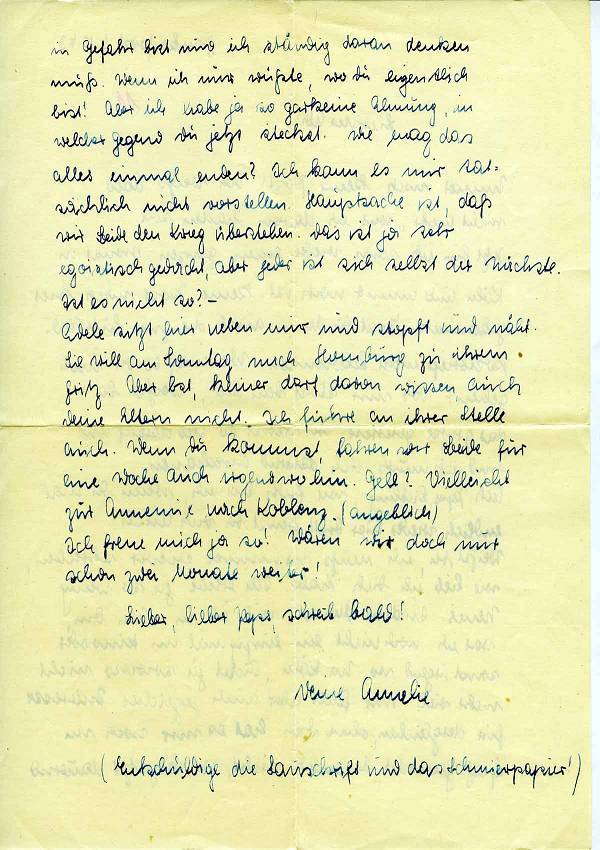 in Gefahr bist und ich ständig daran denken
muß. Wenn ich nur wüßte, wo du eigentlich
bist! Aber ich habe ja so garkeine Ahnung, in
welcher Gegend du jetzt steckst. Wie mag das
alles einmal enden? Ich kann es mir tat-
sächlich nicht vorstellen. Hauptsache ist, daß
wir beide den Krieg überstehen. das ist ja sehr
egoistisch gedacht, aber jeder ist sich selbst der nächste.
Ist es nicht so? –
Adele sitzt hier neben mir und stopft und näht.
Sie will am Sonntag nach Homburg zu ihrem
Fritz. Aber bst, keiner darf davon wissen, auch
deine Eltern nicht. Ich führe an ihrer Stelle
auch. Wenn du kommst, fahren wir beide für
eine Woche auch irgendwohin. Gell? Vielleicht
zur Annemie nach Koblenz. (angeblich)
Ich freue mich ja so! Wären wir doch nur
schon zwei Monate weiter!
Lieber, lieber, schreib bald!
Deine Annelie
(Entschuldige die Sauschrift und das Schmierpapier!)